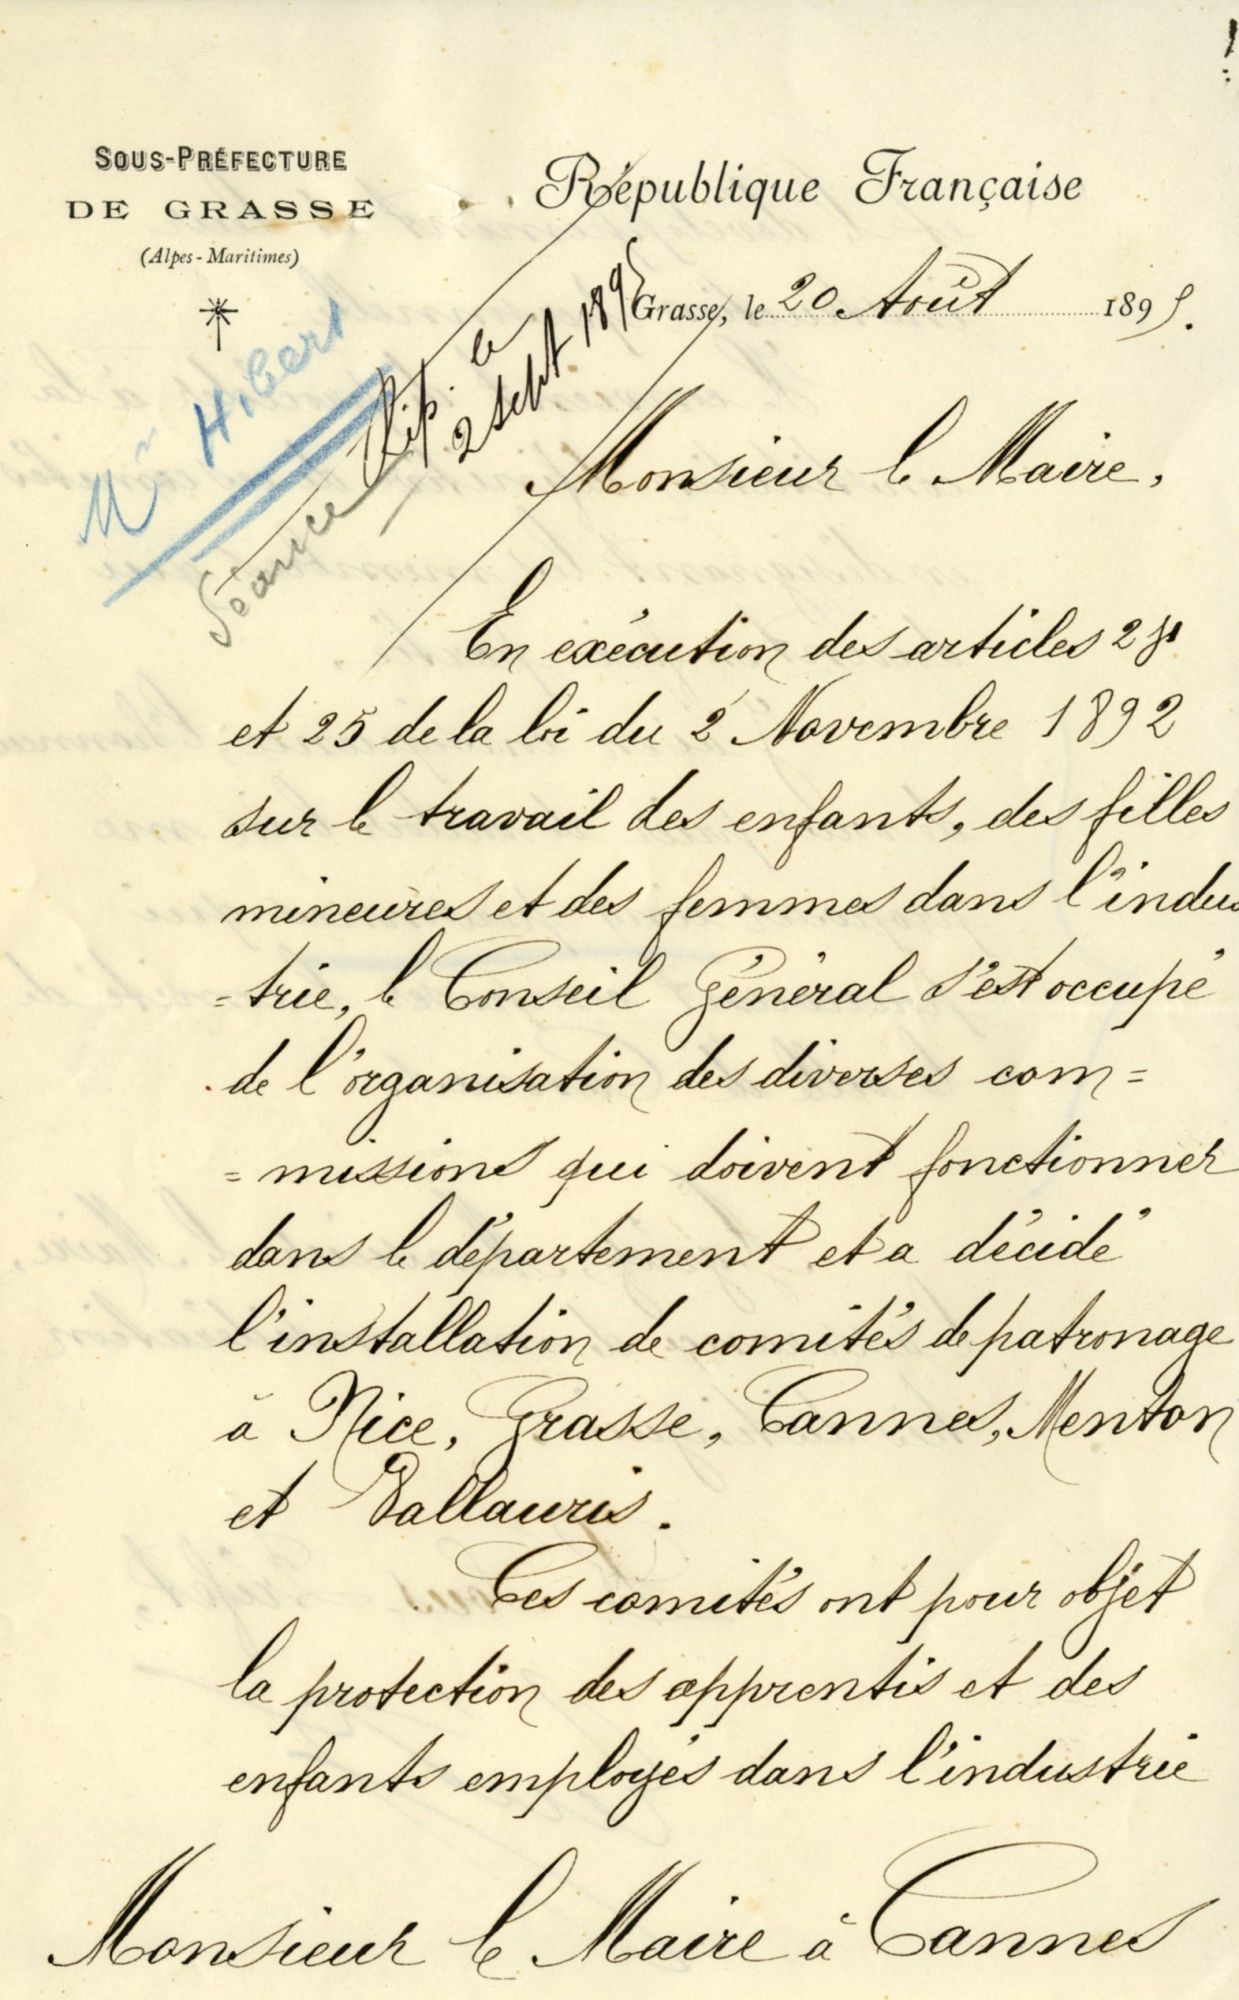 SOUS-PRÉFECTURE
DE GRASSE
(Alpes-Maritimes)
République Française
Grasse, le 20 Août 1895.
Mr Hibert
Séance
Rép. le
2 Sept 1895
Monsieur le Maire,
En exécution des articles 24
et 25 de la loi du 2 Novembre 1892
sur le travail des enfants, des filles
mineures et des femmes dans l'indus
=trie, le Conseil Général s'est occupé
de l'organisation des diverses com=
=missions qui doivent fonctionner
dans le département et a décidé
l'installation de comités de patronage
à Nice, Grasse, Cannes, Menton
et Vallauris.
Ces comités ont pour objet
la protection des apprentis et des
enfants employés dans l'industrie
Monsieur le Maire à Cannes